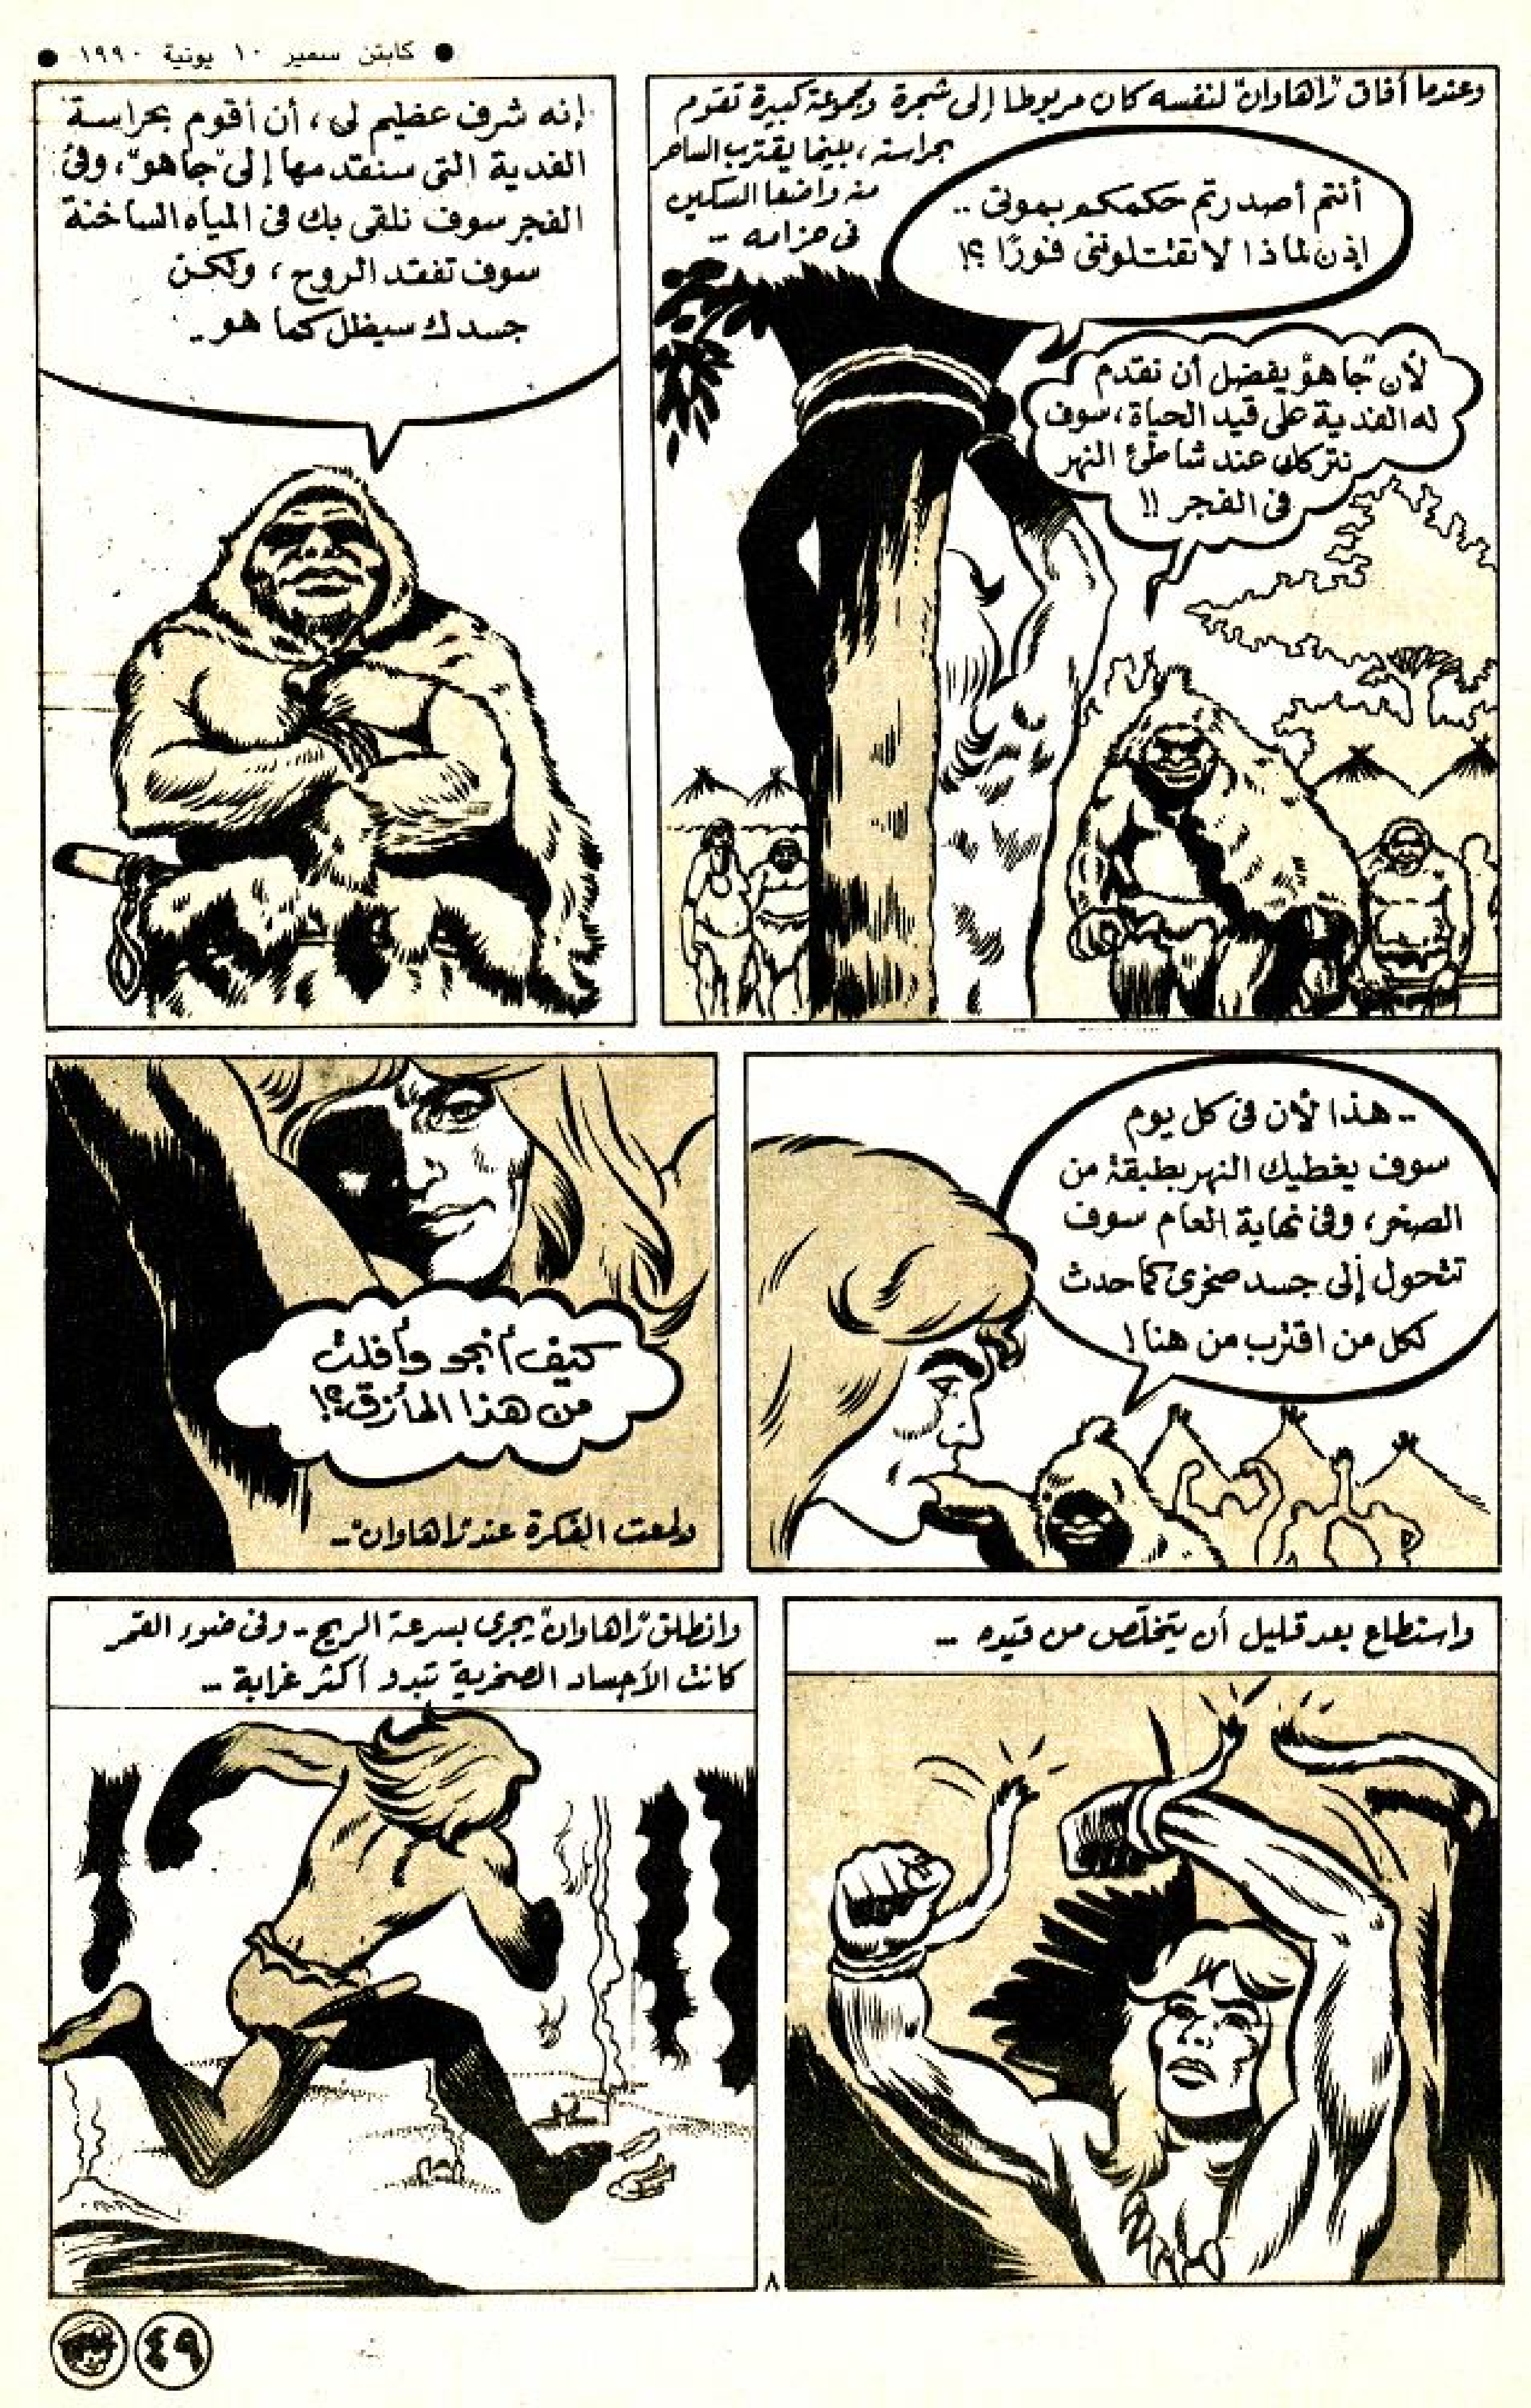 ● كابتن سمير ١٠ يونية ١٩٩٠ ●
وعندما أفاق "راهاوان" لنفسه كان مربوطا إلى شجرة ومجموعة كبيرة تقوم
بحراسته، بينما يقترب الساحر
منه واضعا السكين
فى حزامه ..
أنتم أصدرتم حكمكم بموتى ..
إذن لماذا لا تقتلوننى فورًا ؟!
لأن "جاهو" يفضل أن نقدم
له الفدية على قيد الحياة، سوف
نتركك عند شاطئ النهر
فى الفجر !!
إنه شرف عظيم لى، أن أقوم بحراسة
الفدية التى سنقدمها إلى "جاهو"، وفى
الفجر سوف نلقى بك فى المياه الساخنة
سوف تفقد الروح، ولكن
جسدك سيظل كما هو ..
.. هذا لأن فى كل يوم
سوف يغطيك النهر بطبقة من
الصخر، وفى نهاية العام سوف
تتحول إلى جسد صخرى كما حدث
لكل من اقترب من هنا !
كيف أنجو وأفلت
من هذا المأزق؟!
ولمعت الفكرة عند "راهاوان" ..
واستطاع بعد قليل أن يتخلّص من قيوده ...
وانطلق "راهاوان" يجرى بسرعة الريح .. وفى ضوء القمر
كانت الأجساد الصخرية تبدو أكثر غرابة ..
٨
٤٩